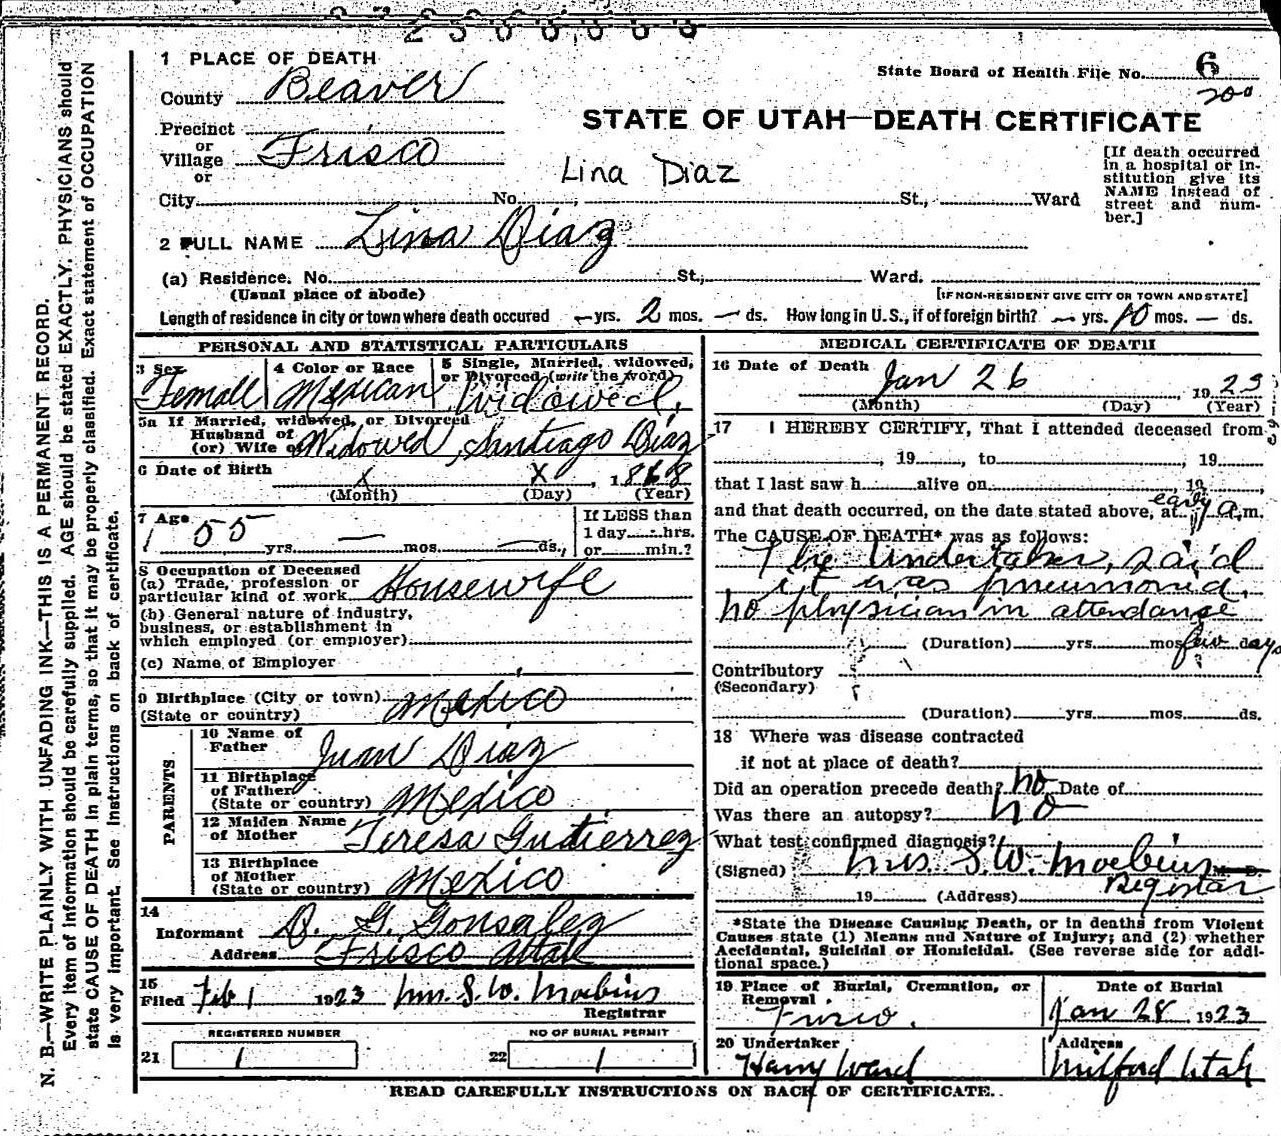 1 PLACE OF DEATH
County Beaver
State Board of Health File No. 6
200
STATE OF UTAH—DEATH CERTIFICATE
Precinct
or
Village Frisco
or
City No. St., Ward
Lina Diaz
[If death occurred in a hospital or in-
stitution give its
NAME instead of
street and num-
ber.]
2 FULL NAME Lina Diaz
(a) Residence. No. St., Ward.
(Usual place of abode)
[IF NON-RESIDENT GIVE CITY OR TOWN AND STATE]
Length of residence in city or town where death occured — yrs. 2 mos. — ds. How long in U.S., if of foreign birth? — yrs. 10 mos. — ds.
PERSONAL AND STATISTICAL PARTICULARS
3 Sex
Female
4 Color or Race
Mexican
5 Single, Married, widowed,
or Divorced (write the word)
Widowed.
5a If Married, widowed, or Divorced
Husband of
(or) Wife of Widowed, Santiago Diaz
6 Date of Birth x x, 1868
(Month) (Day) (Year)
7 Age
55 yrs. — mos. — ds.,
If LESS than
1 day ... hrs.
or ... min.?
8 Occupation of Deceased
(a) Trade, profession or
particular kind of work Housewife
(b) General nature of industry,
business, or establishment in
which employed (or employer)
(c) Name of Employer
9 Birthplace (City or town)
(State or country) Mexico
PARENTS
10 Name of
Father Juan Diaz
11 Birthplace
of Father
(State or country) Mexico
12 Maiden Name
of Mother Teresa Gutierrez
13 Birthplace
of Mother
(State or country) Mexico
14
Informant G. Gonsalez
Address Frisco Utah
15
Filed Feb 1 1923 Mrs. S. W. Moebius
Registrar
REGISTERED NUMBER
21 1
NO OF BURIAL PERMIT
22 1
MEDICAL CERTIFICATE OF DEATH
16 Date of Death Jan 26 1923
(Month) (Day) (Year)
17 I HEREBY CERTIFY, That I attended deceased from
, 19 , to , 19
that I last saw h alive on 19 ,
and that death occurred, on the date stated above, at early a.m.
The CAUSE OF DEATH* was as follows:
The Undertaker, said
it was pneumonia,
no physician in attendance
(Duration) yrs. mos. few days
Contributory
(Secondary)
(Duration) yrs. mos. ds.
18 Where was disease contracted
if not at place of death?
Did an operation precede death? no Date of
Was there an autopsy? no
What test confirmed diagnosis?
(Signed) Mrs. S. W. Moebius M. D.
Registar
19 (Address)
*State the Disease Causing Death, or in deaths from Violent
Causes state (1) Means and Nature of Injury; and (2) whether
Accidental, Suicidal or Homicidal. (See reverse side for addi-
tional space.)
19 Place of Burial, Cremation, or
Removal
Frisco.
Date of Burial
Jan 28 1923
20 Undertaker
Harry Ward
Address
Milford Utah
READ CAREFULLY INSTRUCTIONS ON BACK OF CERTIFICATE.
N. B.—WRITE PLAINLY WITH UNFADING INK—THIS IS A PERMANENT RECORD.
Every item of information should be carefully supplied. AGE should be stated EXACTLY. PHYSICIANS should
state CAUSE OF DEATH in plain terms, so that it may be properly classified. Exact statement of OCCUPATION
is very important. See instructions on back of certificate.